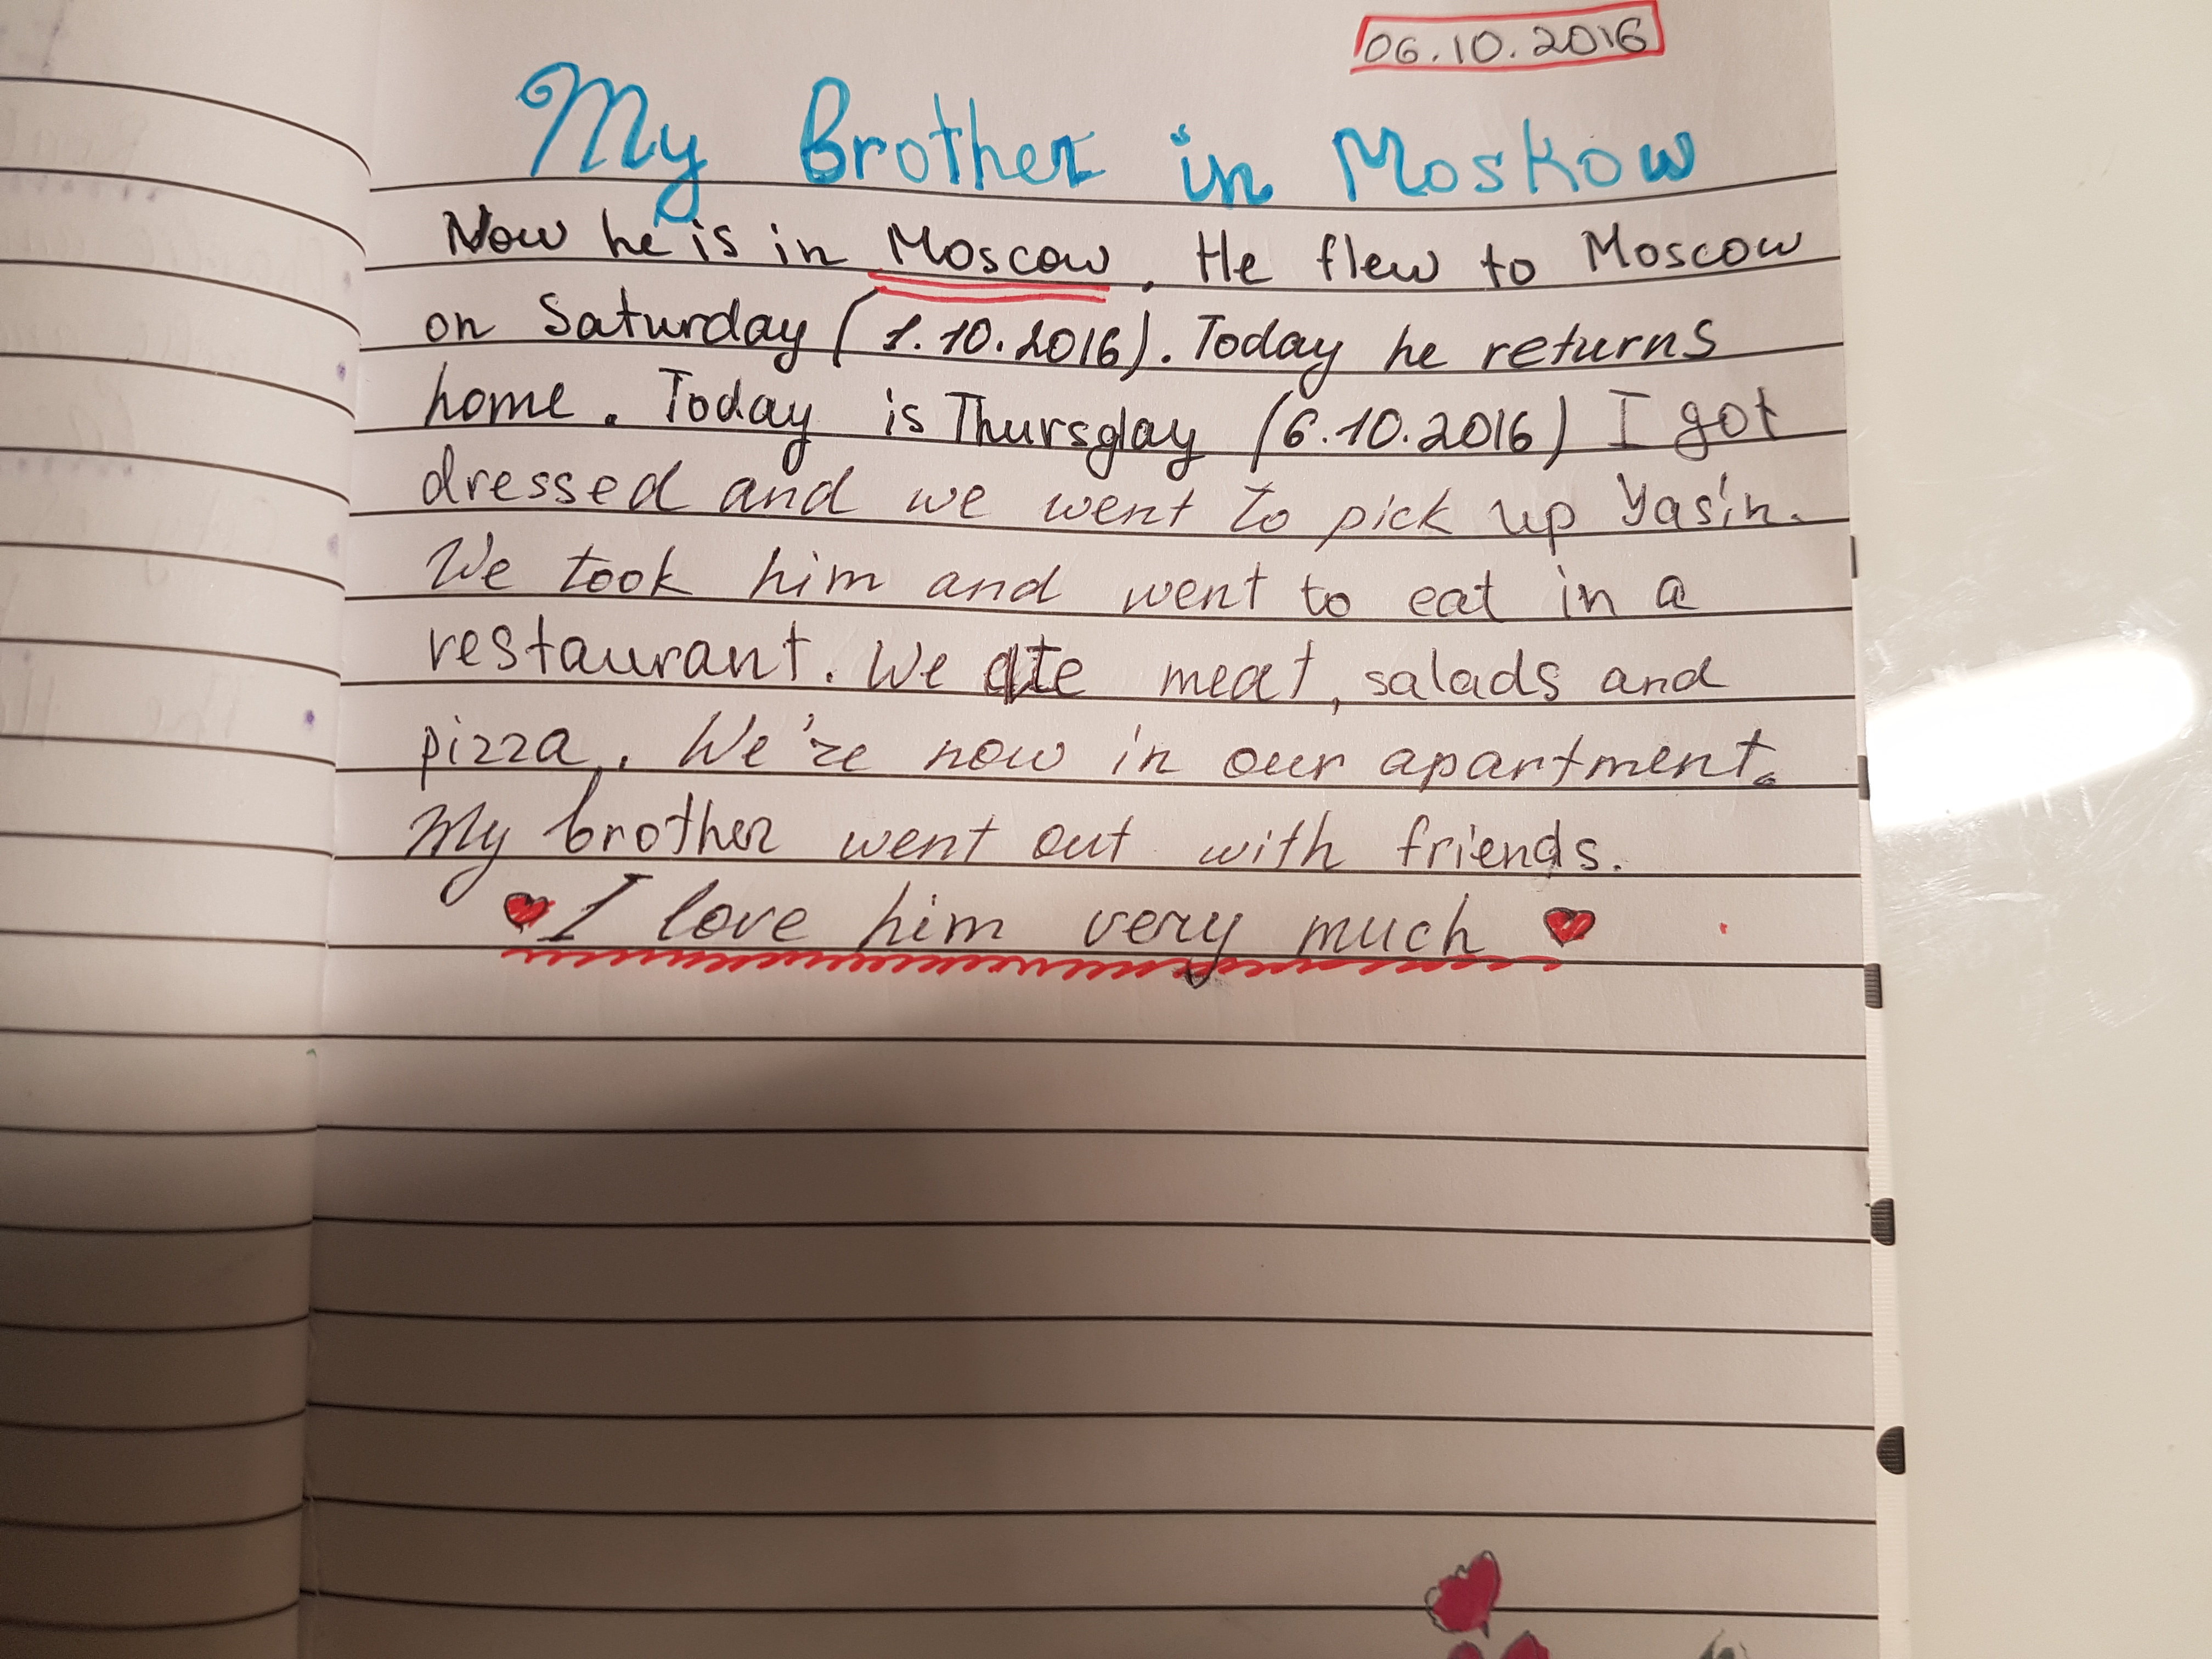 06.10.2016
My Brother in Moskow
Now he is in Moscow. He flew to Moscow
on Saturday (1.10.2016). Today he returns
home. Today is Thursday (6.10.2016) I got
dressed and we went to pick up Yasin.
We took him and went to eat in a
restaurant. We ate meat, salads and
pizza. We're now in our apartment.
My brother went out with friends.
I love him very much